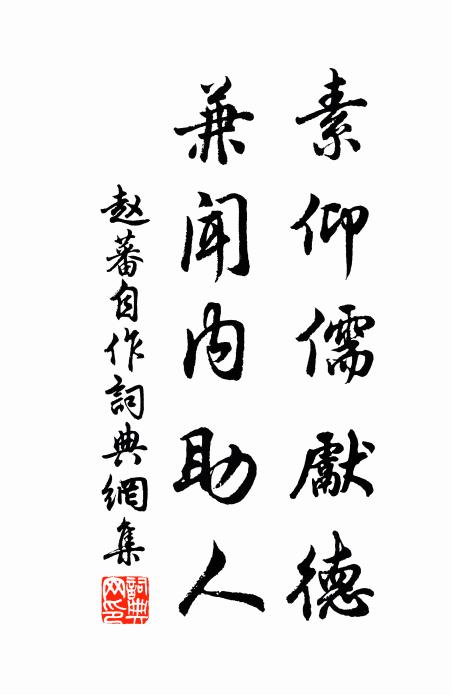 素仰儒獻德
兼聞內助人
赵蕃自作詞典網集
詞典網印